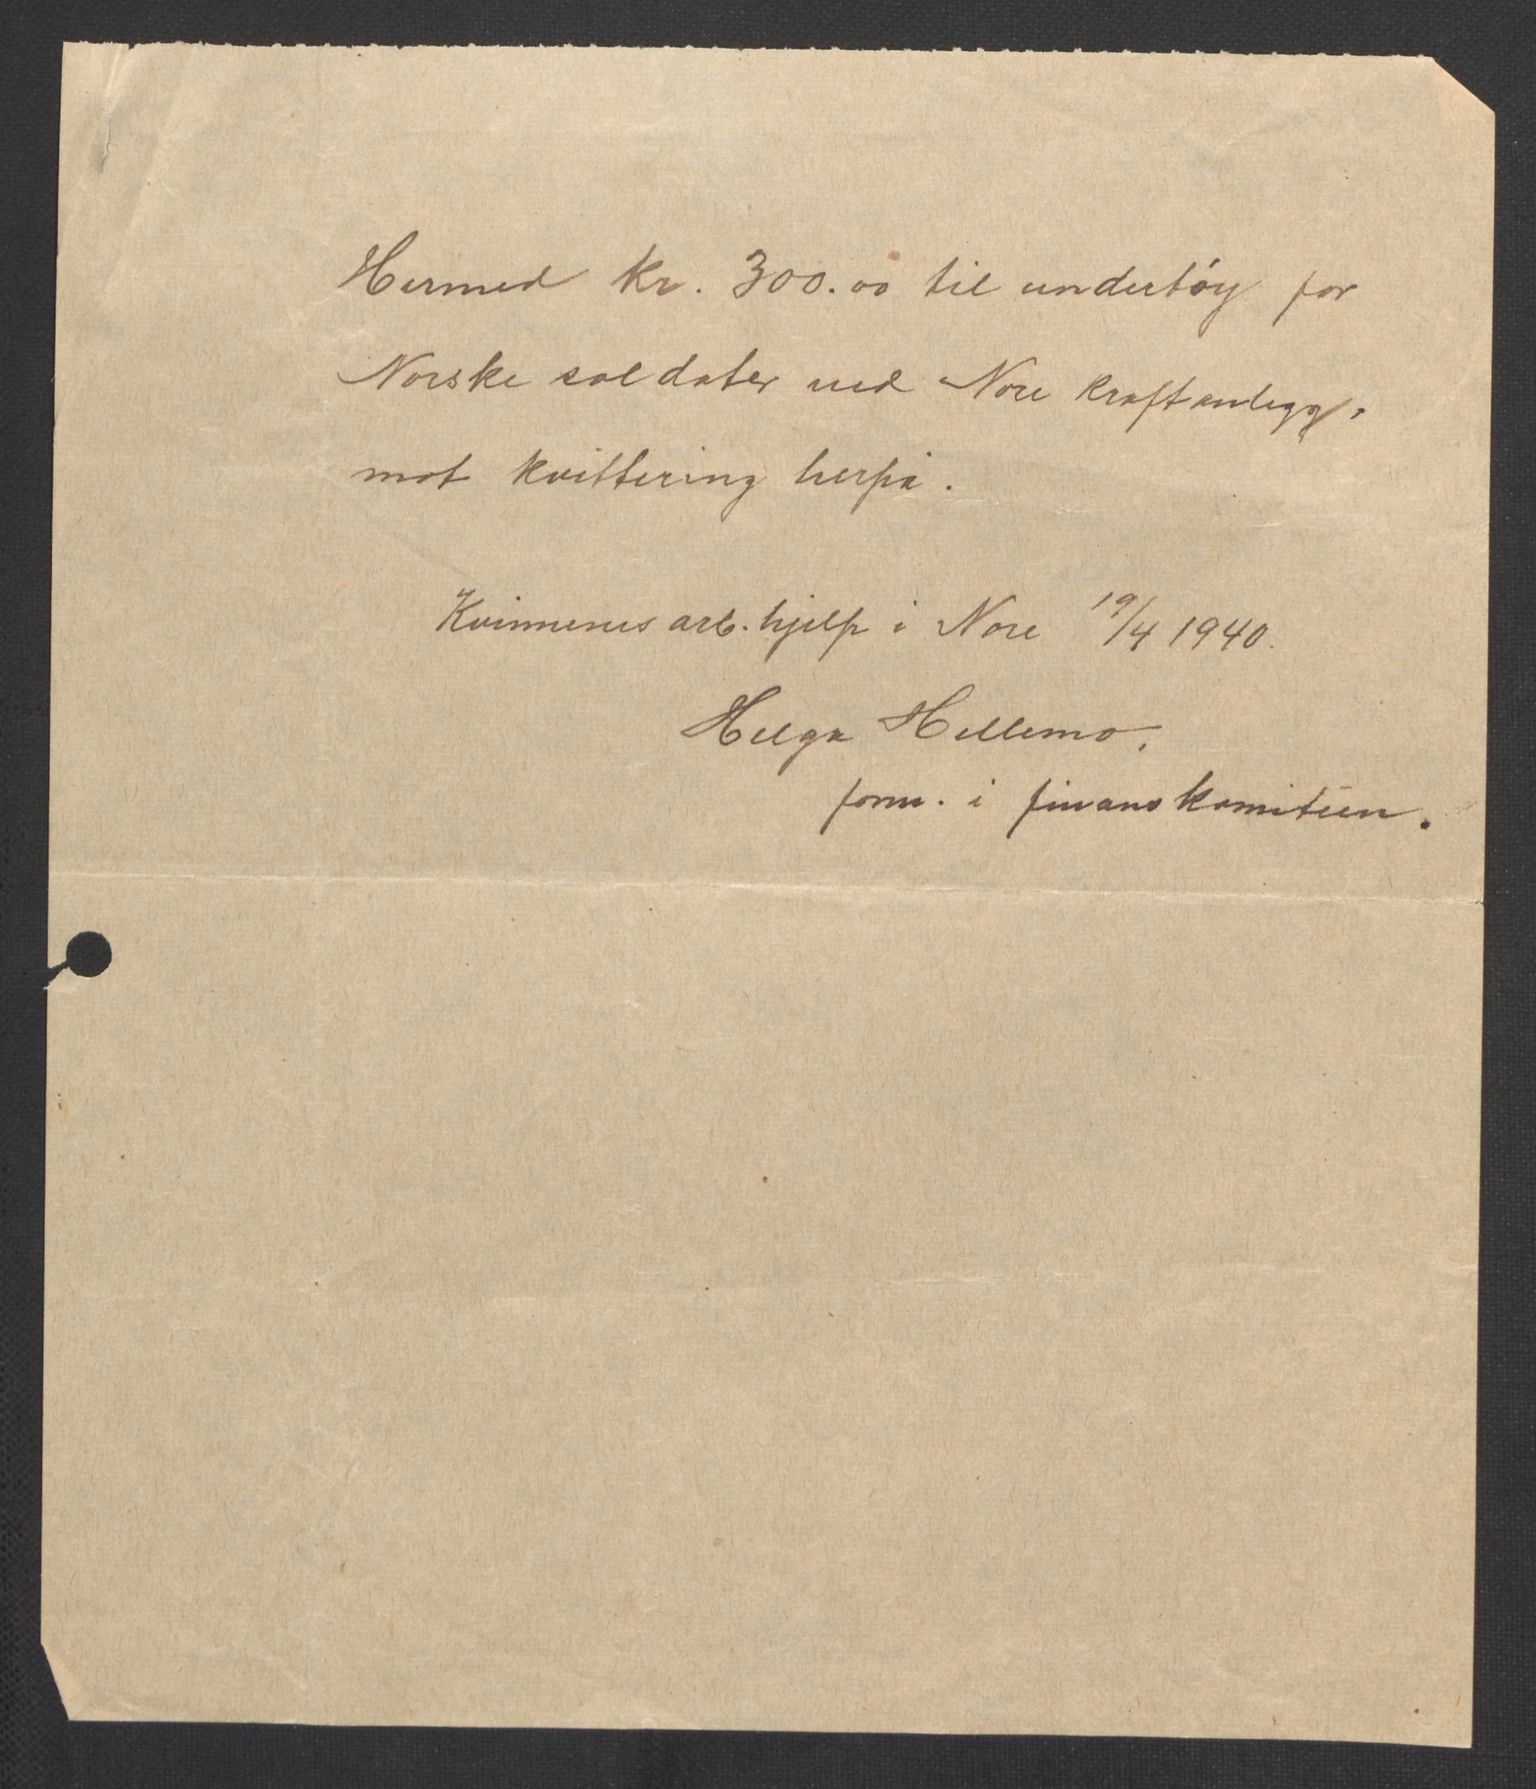 Hermed kr. 300.00 til undertöy for
Norske soldater ved Nore kraftanlegg,
mot kvittering herpå.
Kvinnenes arb. hjelp i Nore 19/4 1940.
Helga Hellemo.
form. i finanskomitéen.